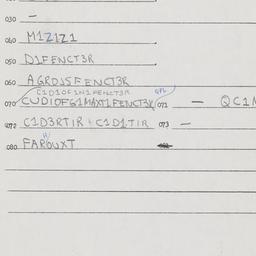 030 —
040 M1Z1Z1
050 D1FENCT3R
060 AGRDJSFENCT3R
C1D1OF1N1FENCT3R
070 CUD1OFG1MAXT1FENCT3R 071 — QC1
072 C1D3RTIR + C1D1TIR 073 —
080 FAROUXT